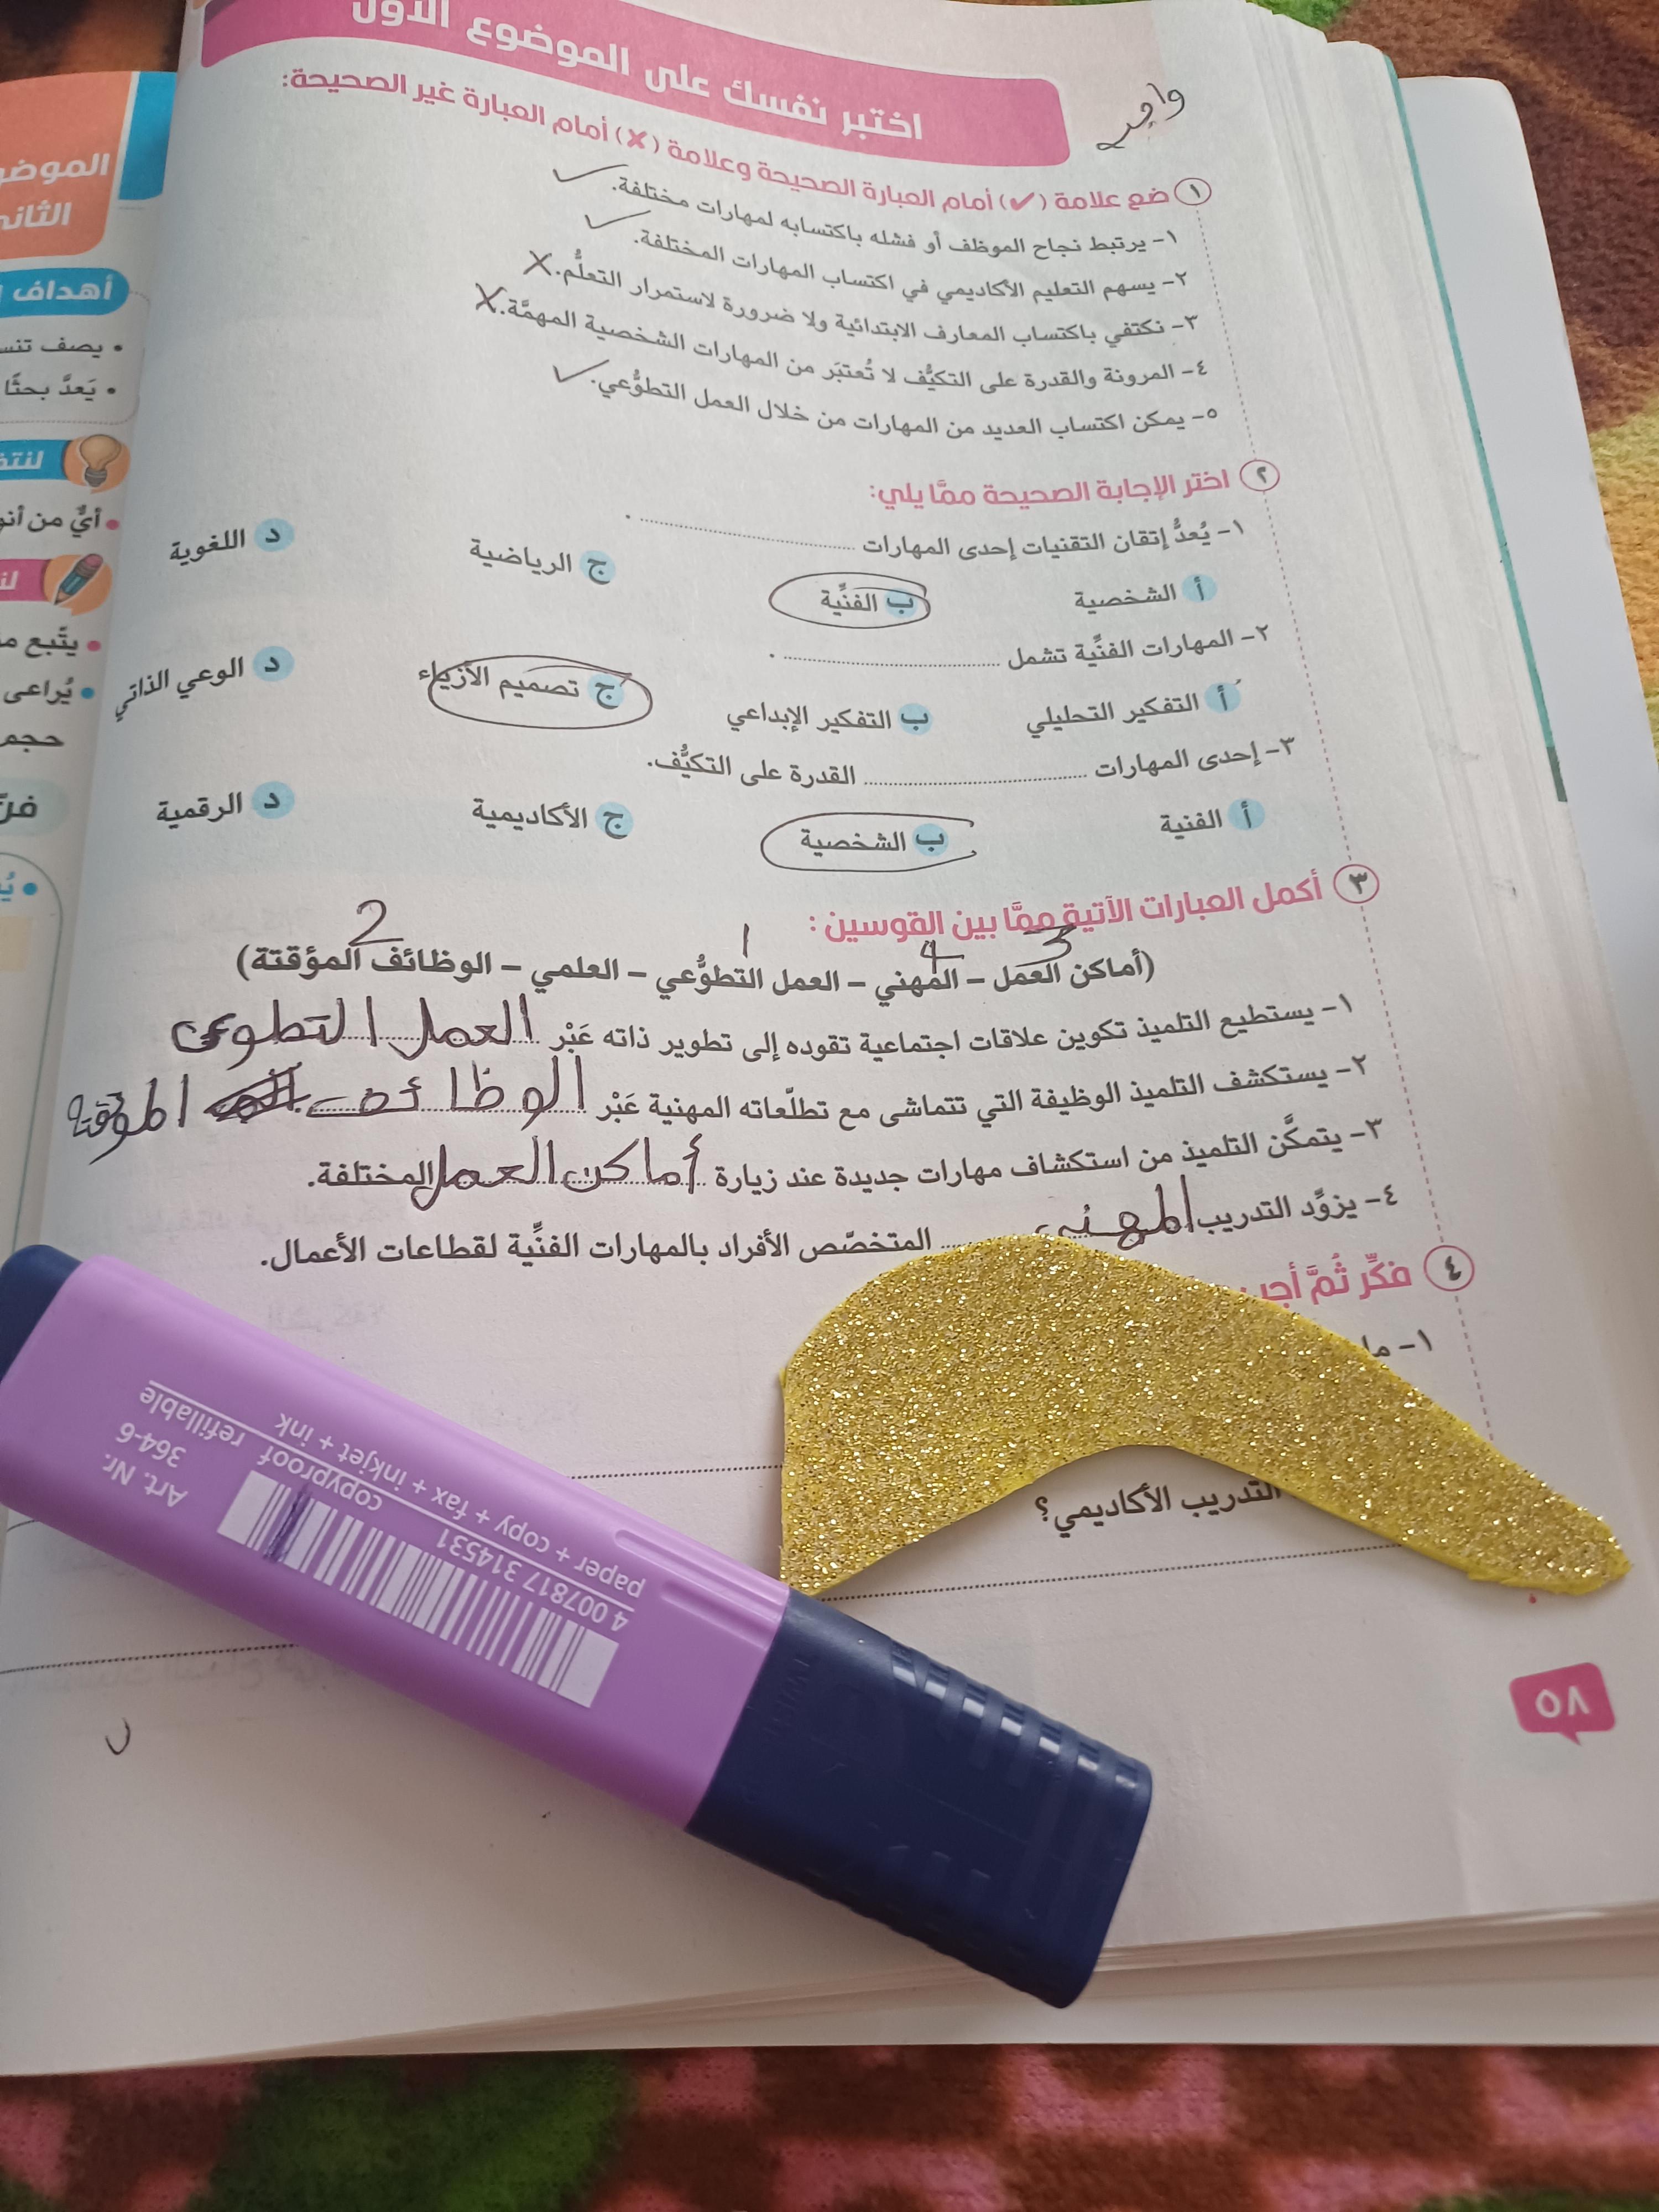 اختبر نفسك على الموضوع الأول
واجب
١ ضع علامة (✓) أمام العبارة الصحيحة وعلامة (✗) أمام العبارة غير الصحيحة:
١- يرتبط نجاح الموظف أو فشله باكتسابه لمهارات مختلفة. ✓
٢- يسهم التعليم الأكاديمي في اكتساب المهارات المختلفة. ✓
٣- نكتفي باكتساب المعارف الابتدائية ولا ضرورة لاستمرار التعلُّم. ✗
٤- المرونة والقدرة على التكيُّف لا تُعتبَر من المهارات الشخصية المهمَّة. ✗
٥- يمكن اكتساب العديد من المهارات من خلال العمل التطوُّعي. ✓
٢ اختر الإجابة الصحيحة ممَّا يلي:
١- يُعدُّ إتقان التقنيات إحدى المهارات ........................ .
أ الشخصية ب الفنِّية ج الرياضية د اللغوية
٢- المهارات الفنِّية تشمل ........................ .
أ التفكير التحليلي ب التفكير الإبداعي ج تصميم الأزياء د الوعي الذاتي
٣- إحدى المهارات ........................ القدرة على التكيُّف.
أ الفنية ب الشخصية ج الأكاديمية د الرقمية
٣ أكمل العبارات الآتية ممَّا بين القوسين:
3 4 1 2
(أماكن العمل - المهني - العمل التطوُّعي - العلمي - الوظائف المؤقتة)
١- يستطيع التلميذ تكوين علاقات اجتماعية تقوده إلى تطوير ذاته عَبْر العمل التطوعى
٢- يستكشف التلميذ الوظيفة التي تتماشى مع تطلّعاته المهنية عَبْر الوظائف المؤقتة
٣- يتمكَّن التلميذ من استكشاف مهارات جديدة عند زيارة أماكن العمل المختلفة.
٤- يزوِّد التدريب المهني المتخصّص الأفراد بالمهارات الفنِّية لقطاعات الأعمال.
٤ فكِّر ثُمَّ أجب
١- ما
التدريب الأكاديمي؟
٥٨
الموضو
الثاني
أهداف
• يصف تنس
• يَعدَّ بحثًا
لنتف
• أيٌّ من أنو
• يتّبع م
• يُراعى
حجم
فنّ
Art. Nr.
364-6
copyproof refillable
paper + copy + fax + inkjet + ink
4 007817 314531